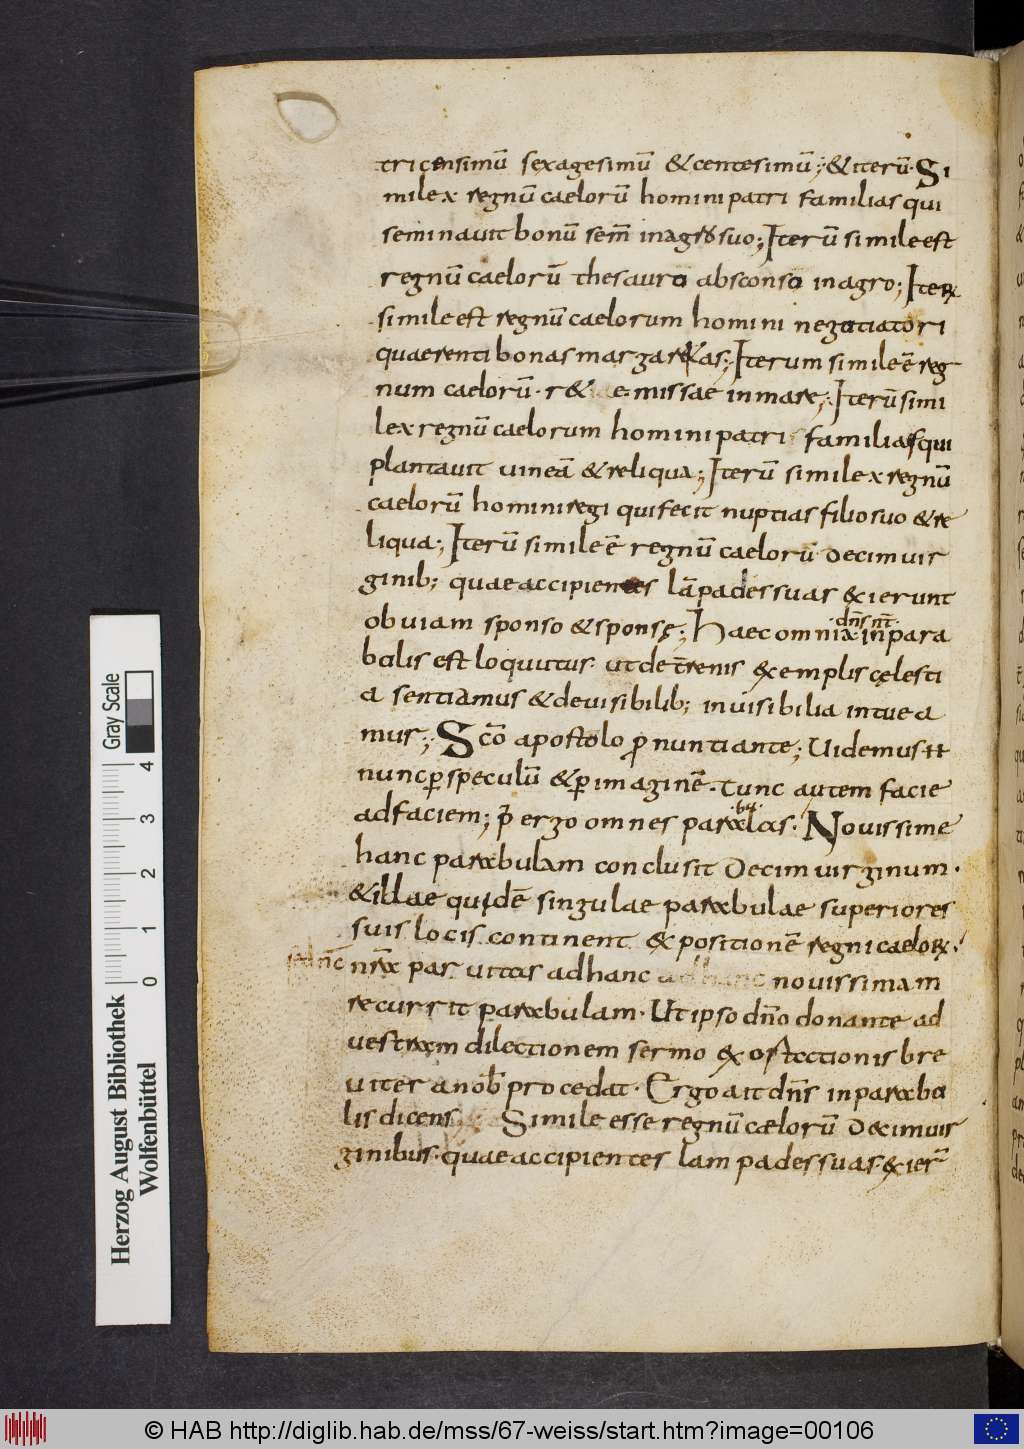 tricensimū sexagesimū & centesimū; & iterū. Si
mile x regnū caelorū homini patri familias qui
seminauit bonū sem̄ in agro suo; Iterū simile est
regnū caelorū thesauro absconso in agro; Iter
simile est regnū caelorum homini negotiatori
quaerenti bonas margaretas; Iterum simile ē reg
num caelorū. r& e missae in mare; Iterū simi
le x regnū caelorum homini patri familias qui
plantauit uineā & reliqua; Iterū simile x regnū
caelorū homini regi qui fecit nuptias filio suo & re
liqua; Iterū simile ē regnū caelorū decim uir
ginib; quae accipientes lāpades suas exierunt
obuiam sponso & sponsę; Haec omnia dn̄s nt̄ in para
bolis est loquutus ut de t̄renis exemplis cęlesti
a sentiamus & de uisibilib; inuisibilia intuea
mur; Scō apostolo pronuntiante; Uidemus
nunc per speculū & per imaginē. tunc autem facie
ad faciem; p̄ ergo omnes parabulas. Nouissime
hanc parabulam conclusit decim uirginum.
& illae quidē singulae parabulae superiores
suis locis continent expositionē regni caelor.
nr̄a paruitas ad hanc ad hanc nouissimam
recurrit parabulam. Ut ipso dn̄o donante ad
uestram dilectionem sermo exortationis bre
uiter a nob procedat. Ergo ait dn̄s in parabo
lis dicens; Simile esse regnū cælorū decim uir
ginibus. quae accipientes lampades suas. exier̄
Herzog August Bibliothek
Wolfenbüttel
0 1 2 3 4
Gray Scale
© HAB http://diglib.hab.de/mss/67-weiss/start.htm?image=00106